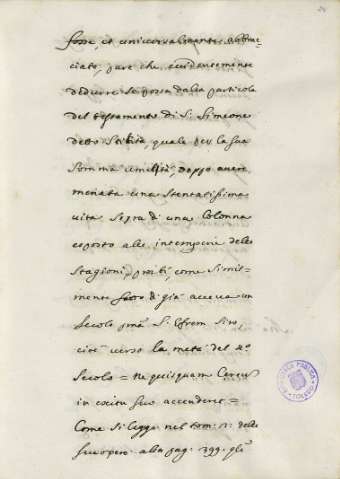 fosse, et universalmente abbrac-
ciato, pare che evidentemente
dedurre se possa dalla particola
del testamento di S. Simeone
detto Stilita, quale per la sua
somma umiltà, doppo avere
menata una stentatissima
vita sopra di una Colonna
esposto alle intemperie delle
Stagioni, proibì, come simil-
mente fatto di già aveva un
Secolo pmã S. Efrem Siro
cioè verso la metà del 4º
Secolo = Ne quisquam Cereum
in exitu suo accenderet =
Come si legge nel tom: 2: delle
sue opere alla pag: 399.
BIBLIOTECA PUBLICA
TOLEDO